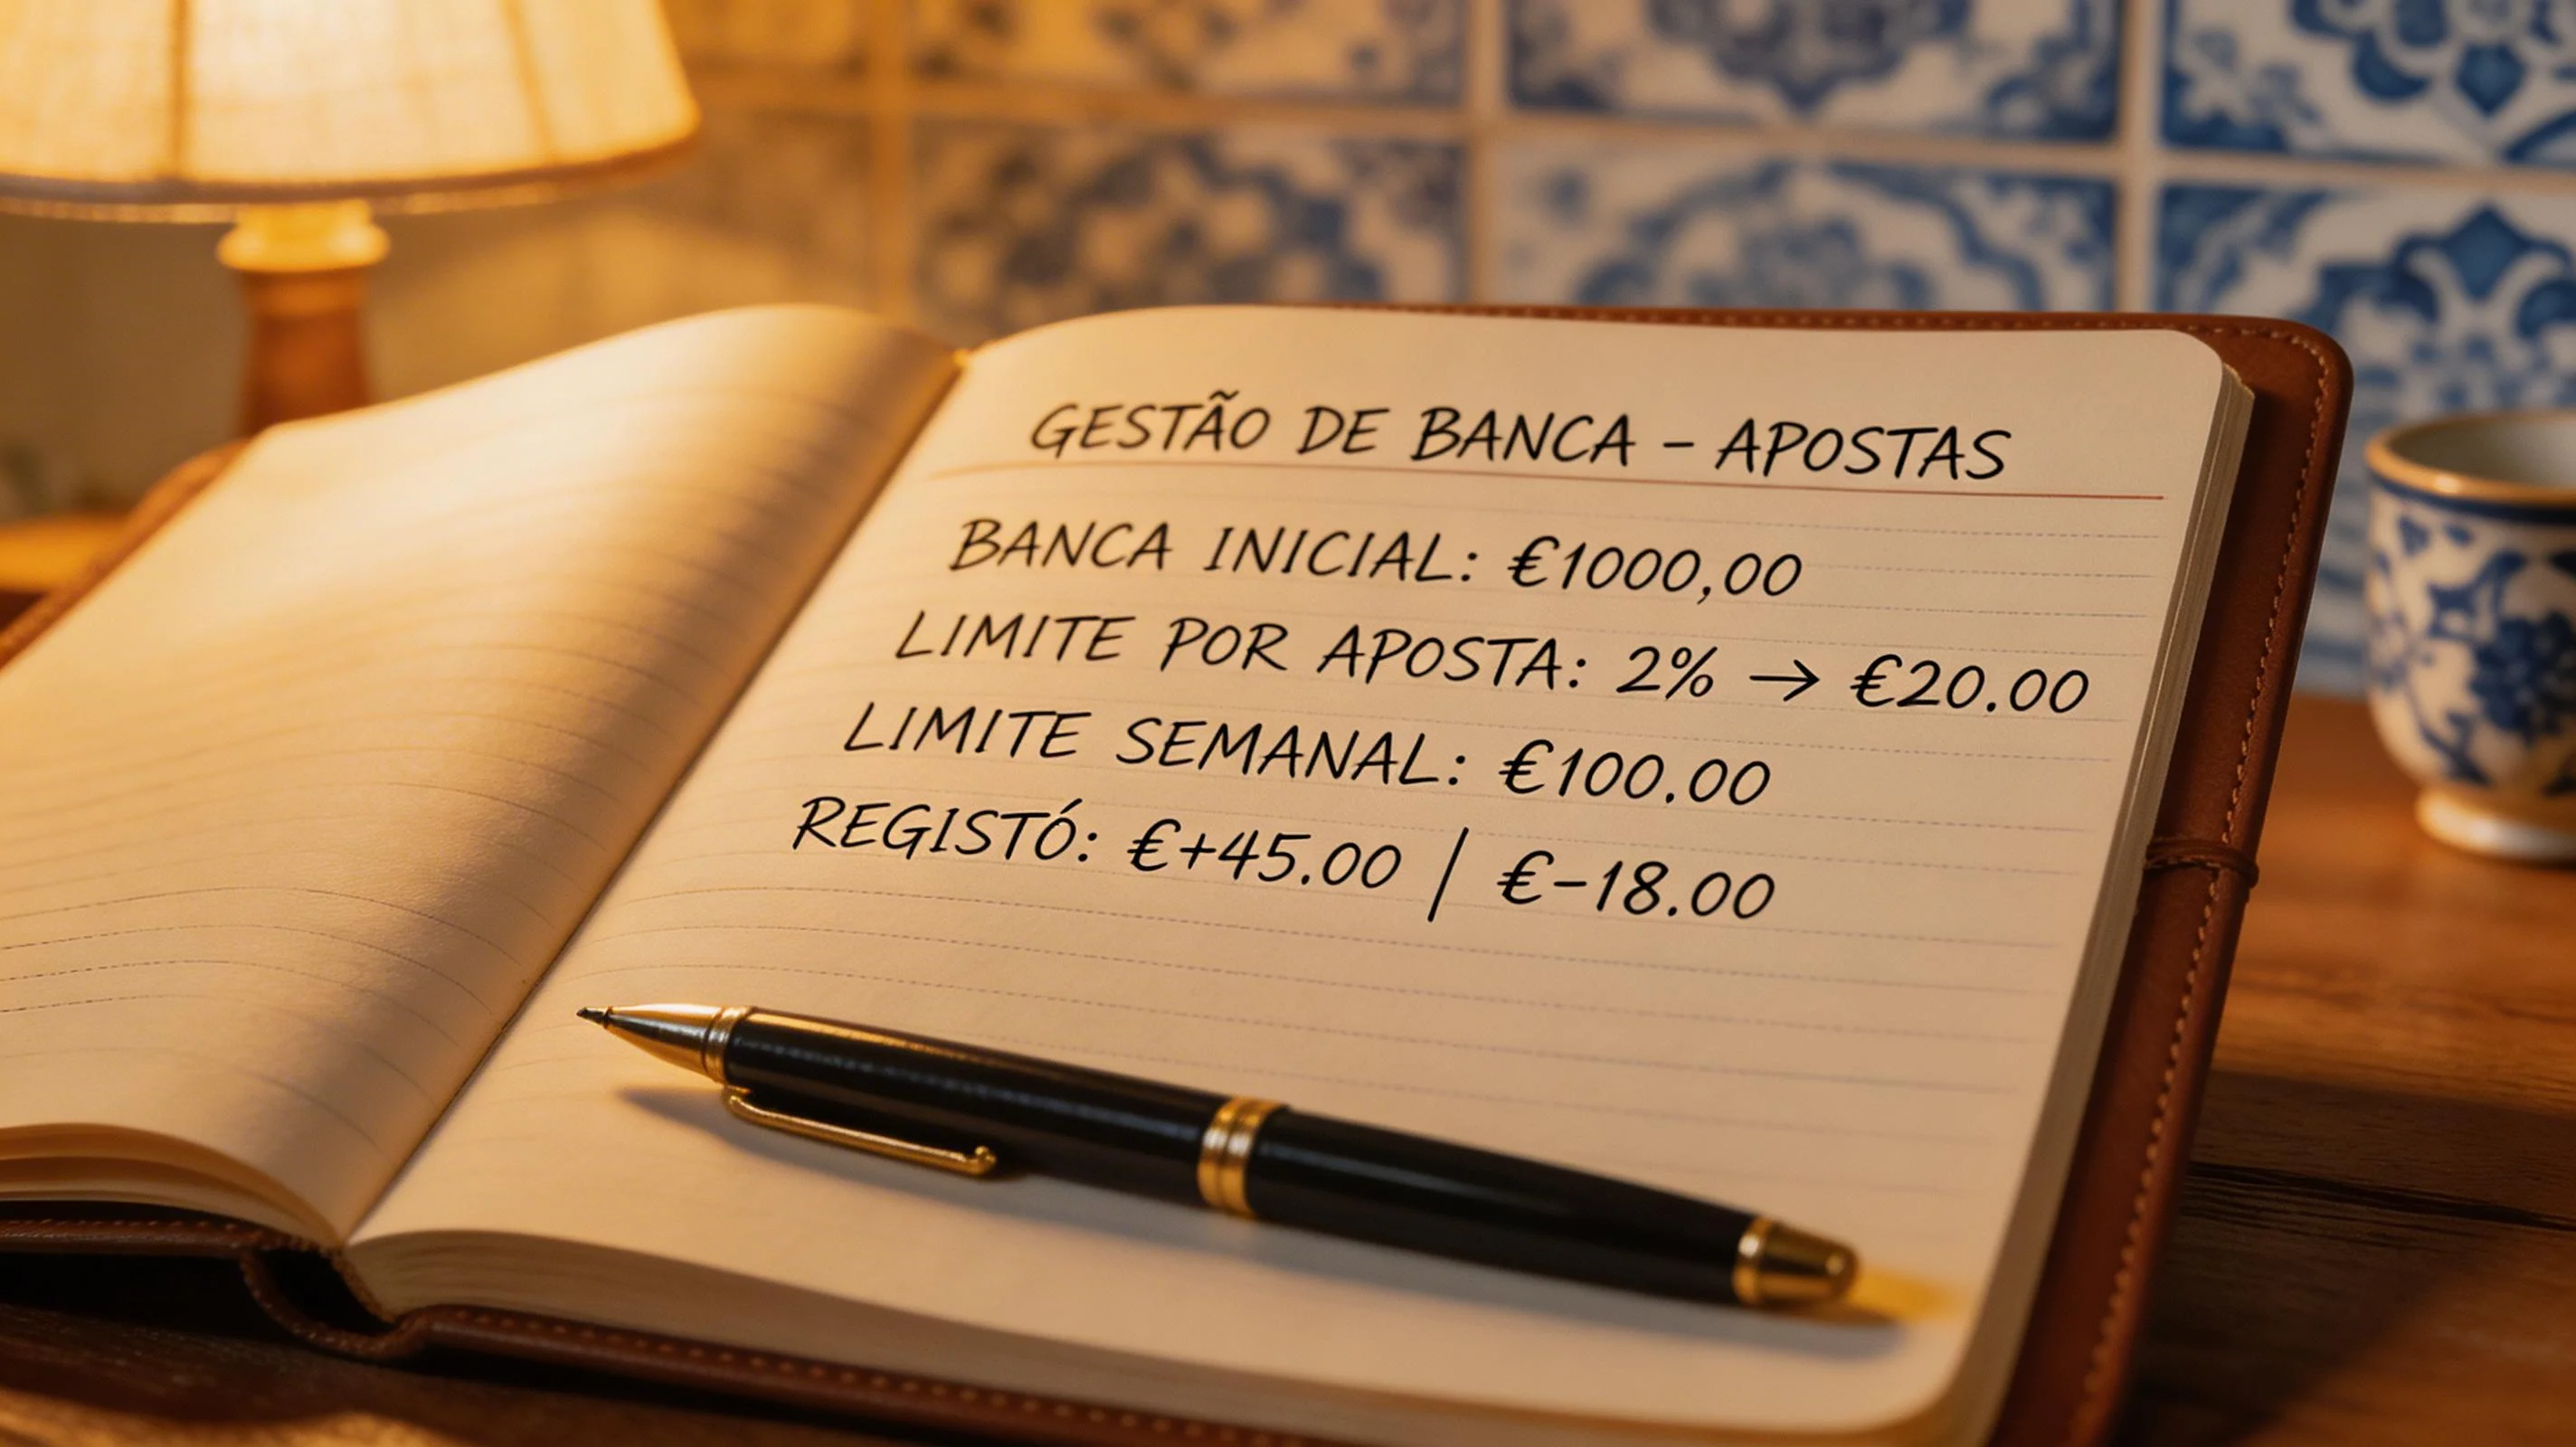 GESTÃO DE BANCA - APOSTAS
BANCA INICIAL: €1000,00
LIMITE POR APOSTA: 2% → €20.00
LIMITE SEMANAL: €100.00
REGISTÓ: €+45.00 | €-18.00